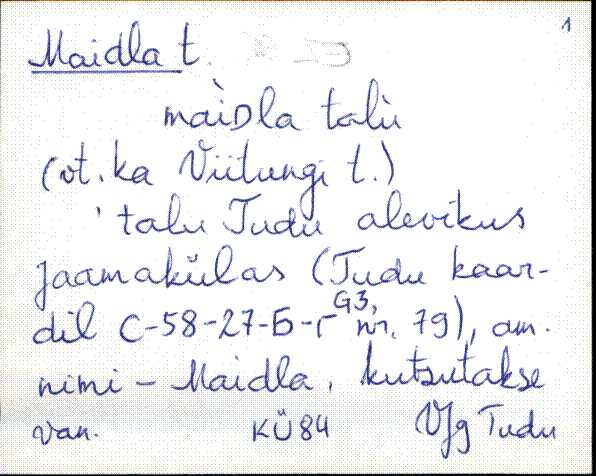 1
Maidla t.
màiDla talù
(vt. ka Viitungi t.)
'talu Tudu alevikus
jaamakülas (Tudu kaar-
dil C-58-27-Б-Г G3, nr. 79), am.
nimi - Maidla, kutsutakse
van. KÜ84 VJg Tudu